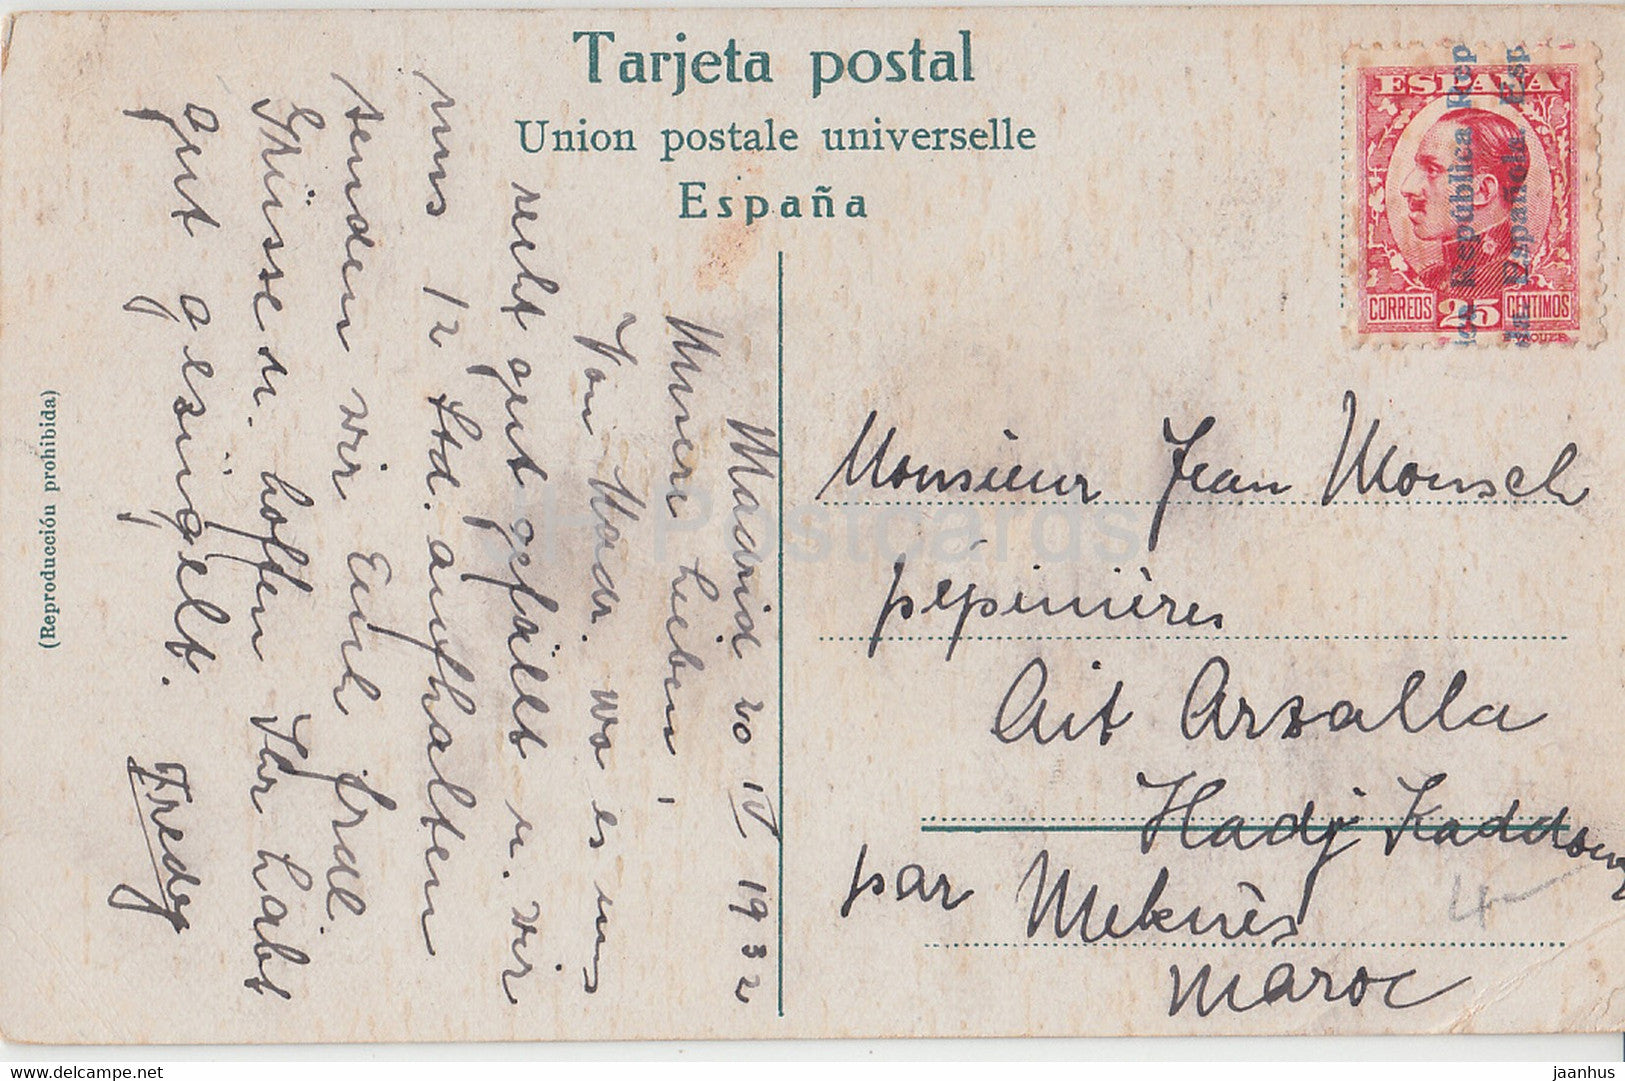 Tarjeta postal
Union postale universelle
España
ESPAÑA
CORREOS 25 CENTIMOS
República Rep
Española. Esp
(Reproducción prohibida)
Madrid 20 IV 1932
Unsere Lieben!
Von Madr. wo es uns
recht gut gefällt u. wir
uns 12 Std. aufhalten
senden wir Euch frdl.
Grüsse u. hoffen Ihr habt
gut gesüngelt.
Fredy
Monsieur Jean Monsch
pépinières
Ait Arzalla
Hadj Kaddour
par Meknès
Maroc
4-
JH Postcards
jaanhus